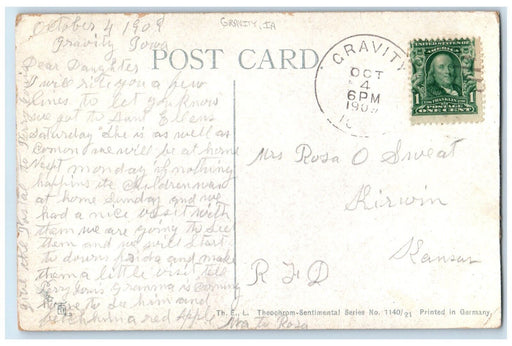 October 4 1909
Gravity Iowa
GRAVITY, IA
POST CARD
GRAVITY
OCT
4
6PM
1909
UNITED STATES OF AMERICA
POSTAGE
ONE CENT
1 1
Dear Daughter
I will rite you a few
lines to let you know
we got to Aunt
Saturday She is as well as
Common we will be at home
Next monday if nothing
happins its Children was
at home Sunday and we
had a nice visit with
them we are going to see
them and we will Start
to down friday and make
them a little visit tell
Perry Louis Granma is Coming
home to See him and
fetch him a red Apple
Ma to Rosa
Mrs Rosa O Sweat
Kirwin
Kansas
R F D
Th. E. L. Theochrom-Sentimental Series No. 1140/21 Printed in Germany
give this Postal to